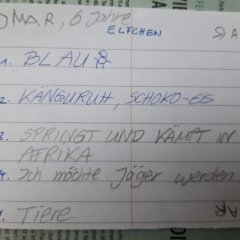 OMAR, 6 Jahre
ELFCHEN
1. BLAU
2. KÄNGURUH, SCHOKO-EIS
3. SPRINGT UND KÄMPT IN
AFRIKA
4. Ich möchte Jäger werden
1. Tiere